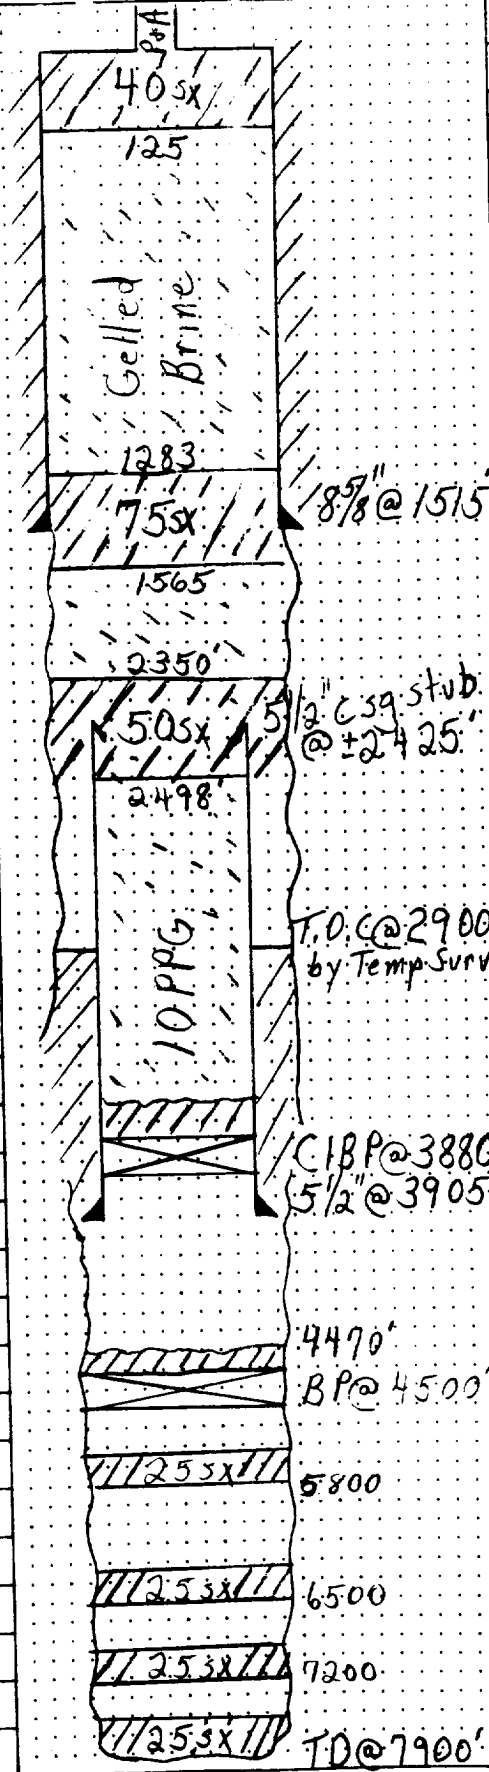 P&A
40 sx
125
Gelled
Brine
1283
75sx
8 5/8" @ 1515'
1565
2350'
50sx
5 1/2" csg stub
@ ±2425'
2498'
10 PPG
T.O.C @ 2900
by Temp Surv
CIBP @ 3880
5 1/2" @ 3905
4470'
BP @ 4500'
25sx
5800
25sx
6500
25sx
7200
25sx
TD @ 7900'